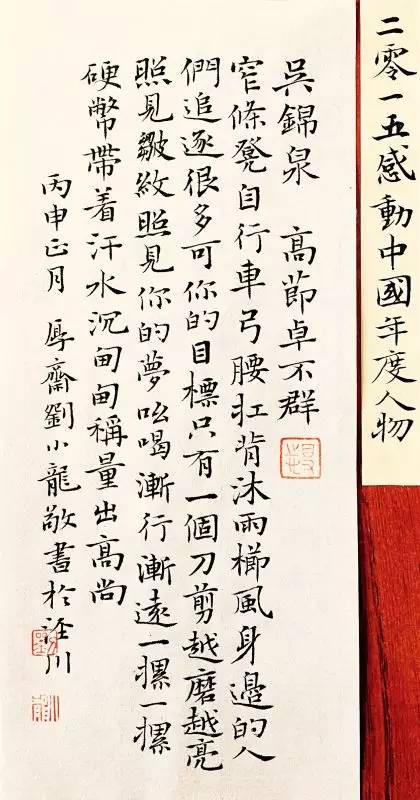 二零一五感動中國年度人物
吳錦泉 高節卓不群
窄條凳自行車弓腰扛背沐雨櫛風身邊的人
們追逐很多可你的目標只有一個刀剪越磨越亮
照見皺紋照見你的夢吆喝漸行漸遠一摞一摞
硬幣帶着汗水沉甸甸稱量出高尚
丙申正月 厚齋劉小龍敬書於涇川